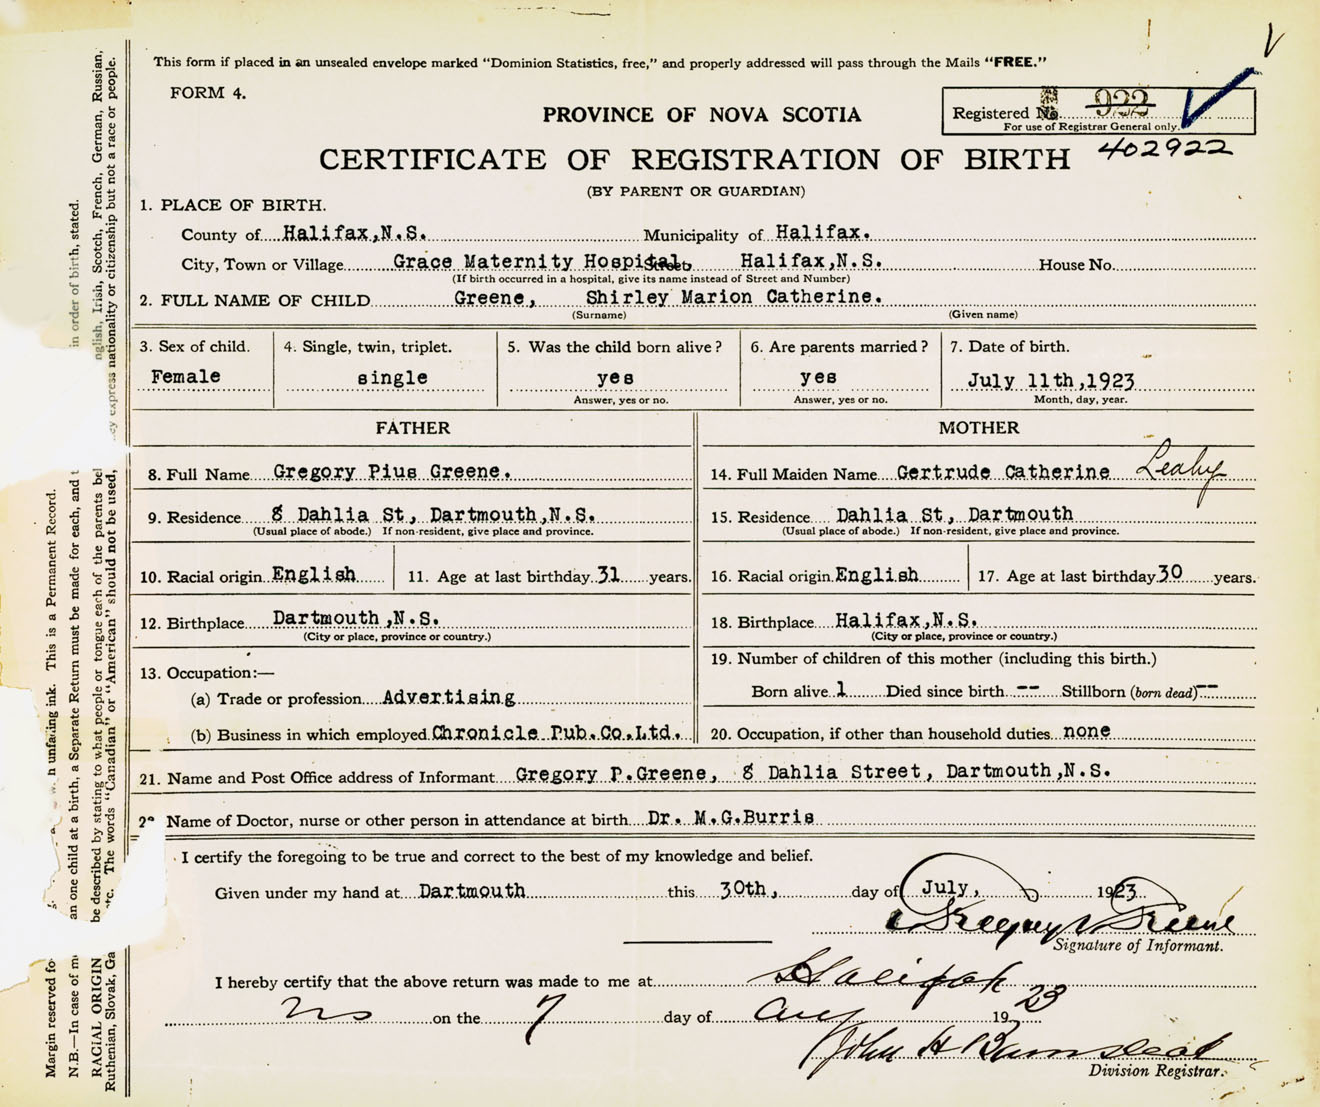 This form if placed in an unsealed envelope marked "Dominion Statistics, free," and properly addressed will pass through the Mails "FREE."
FORM 4.
PROVINCE OF NOVA SCOTIA
Registered No. 922
For use of Registrar General only.
402922
CERTIFICATE OF REGISTRATION OF BIRTH
(BY PARENT OR GUARDIAN)
1. PLACE OF BIRTH.
County of Halifax,N.S. Municipality of Halifax.
City, Town or Village Grace Maternity Hospital, Street Halifax,N.S. House No.
(If birth occurred in a hospital, give its name instead of Street and Number)
2. FULL NAME OF CHILD Greene, Shirley Marion Catherine.
(Surname) (Given name)
3. Sex of child. 4. Single, twin, triplet. 5. Was the child born alive? 6. Are parents married? 7. Date of birth.
Female single yes yes July 11th,1923
Answer, yes or no. Answer, yes or no. Month, day, year.
FATHER MOTHER
8. Full Name Gregory Pius Greene. 14. Full Maiden Name Gertrude Catherine Leahy
9. Residence 8 Dahlia St, Dartmouth,N.S. 15. Residence Dahlia St, Dartmouth
(Usual place of abode.) If non-resident, give place and province. (Usual place of abode.) If non-resident, give place and province.
10. Racial origin English 11. Age at last birthday 31 years. 16. Racial origin English 17. Age at last birthday 30 years.
12. Birthplace Dartmouth,N.S. 18. Birthplace Halifax,N.S.
(City or place, province or country.) (City or place, province or country.)
13. Occupation:— 19. Number of children of this mother (including this birth.)
(a) Trade or profession Advertising Born alive 1 Died since birth -- Stillborn (born dead) --
(b) Business in which employed Chronicle Pub.Co.Ltd. 20. Occupation, if other than household duties none
21. Name and Post Office address of Informant Gregory P.Greene, 8 Dahlia Street, Dartmouth,N.S.
22 Name of Doctor, nurse or other person in attendance at birth Dr. M.G.Burris
I certify the foregoing to be true and correct to the best of my knowledge and belief.
Given under my hand at Dartmouth this 30th, day of July, 1923
Gregory P Greene
Signature of Informant.
I hereby certify that the above return was made to me at Halifax
NS on the 7 day of Aug 1923
John H Barnstead
Division Registrar.
Margin reserved fo h unfading ink. This is a Permanent Record.
N.B.—In case of m an one child at a birth, a Separate Return must be made for each, and t in order of birth, stated.
RACIAL ORIGIN be described by stating to what people or tongue each of the parents bel nglish, Irish, Scotch, French, German, Russian,
Ruthenian, Slovak, Ga tc. The words "Canadian" or "American" should not be used, cy express nationality or citizenship but not a race or people.